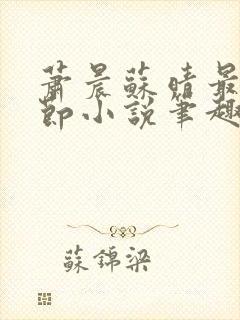 蕭晨蘇晴最
節小說筆趣
蘇錦梁